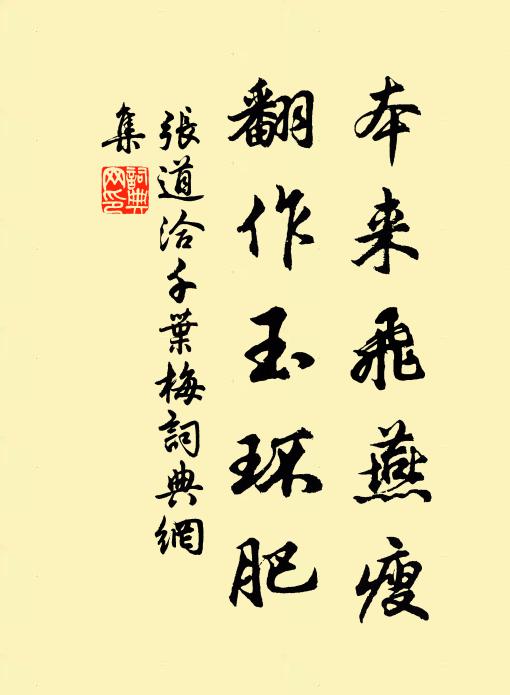 本来飛燕瘦
翻作玉环肥
張道洽千葉梅詞典網
集
詞典
网印